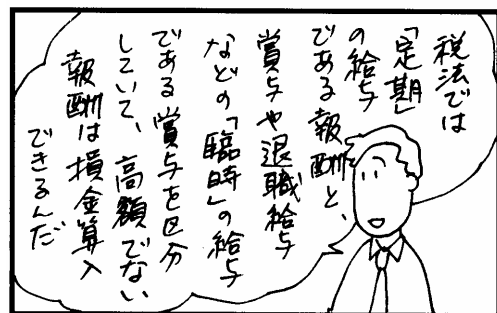 税法では
「定期」
の給与
である報酬と、
賞与や退職給与
などの「臨時」の給与
である賞与を区分
していて、高額でない
報酬は損金算入
できるんだ